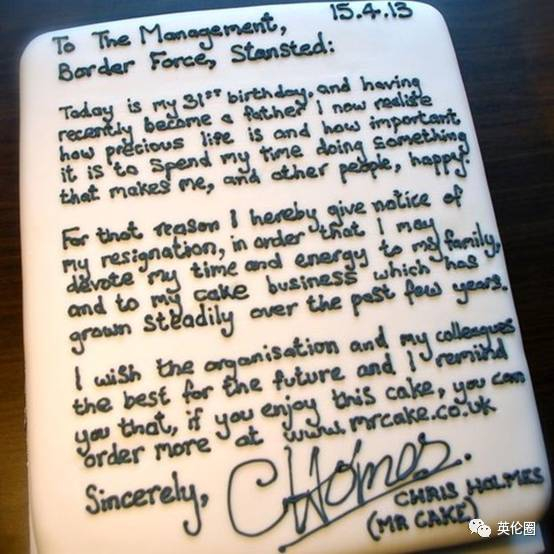 15.4.13
To The Management,
Border Force, Stansted:
Today is my 31ST birthday, and having
recently become a father I now realise
how precious life is and how important
it is to spend my time doing something
that makes me, and other people, happy.
For that reason I hereby give notice of
my resignation, in order that I may
devote my time and energy to my family,
and to my cake business which has
grown steadily over the past few years.
I wish the organisation and my colleagues
the best for the future and I remind
you that, if you enjoy this cake, you can
order more at www.mrcake.co.uk
Sincerely,
CHolmes.
CHRIS HOLMES
(MR CAKE)
英伦圈